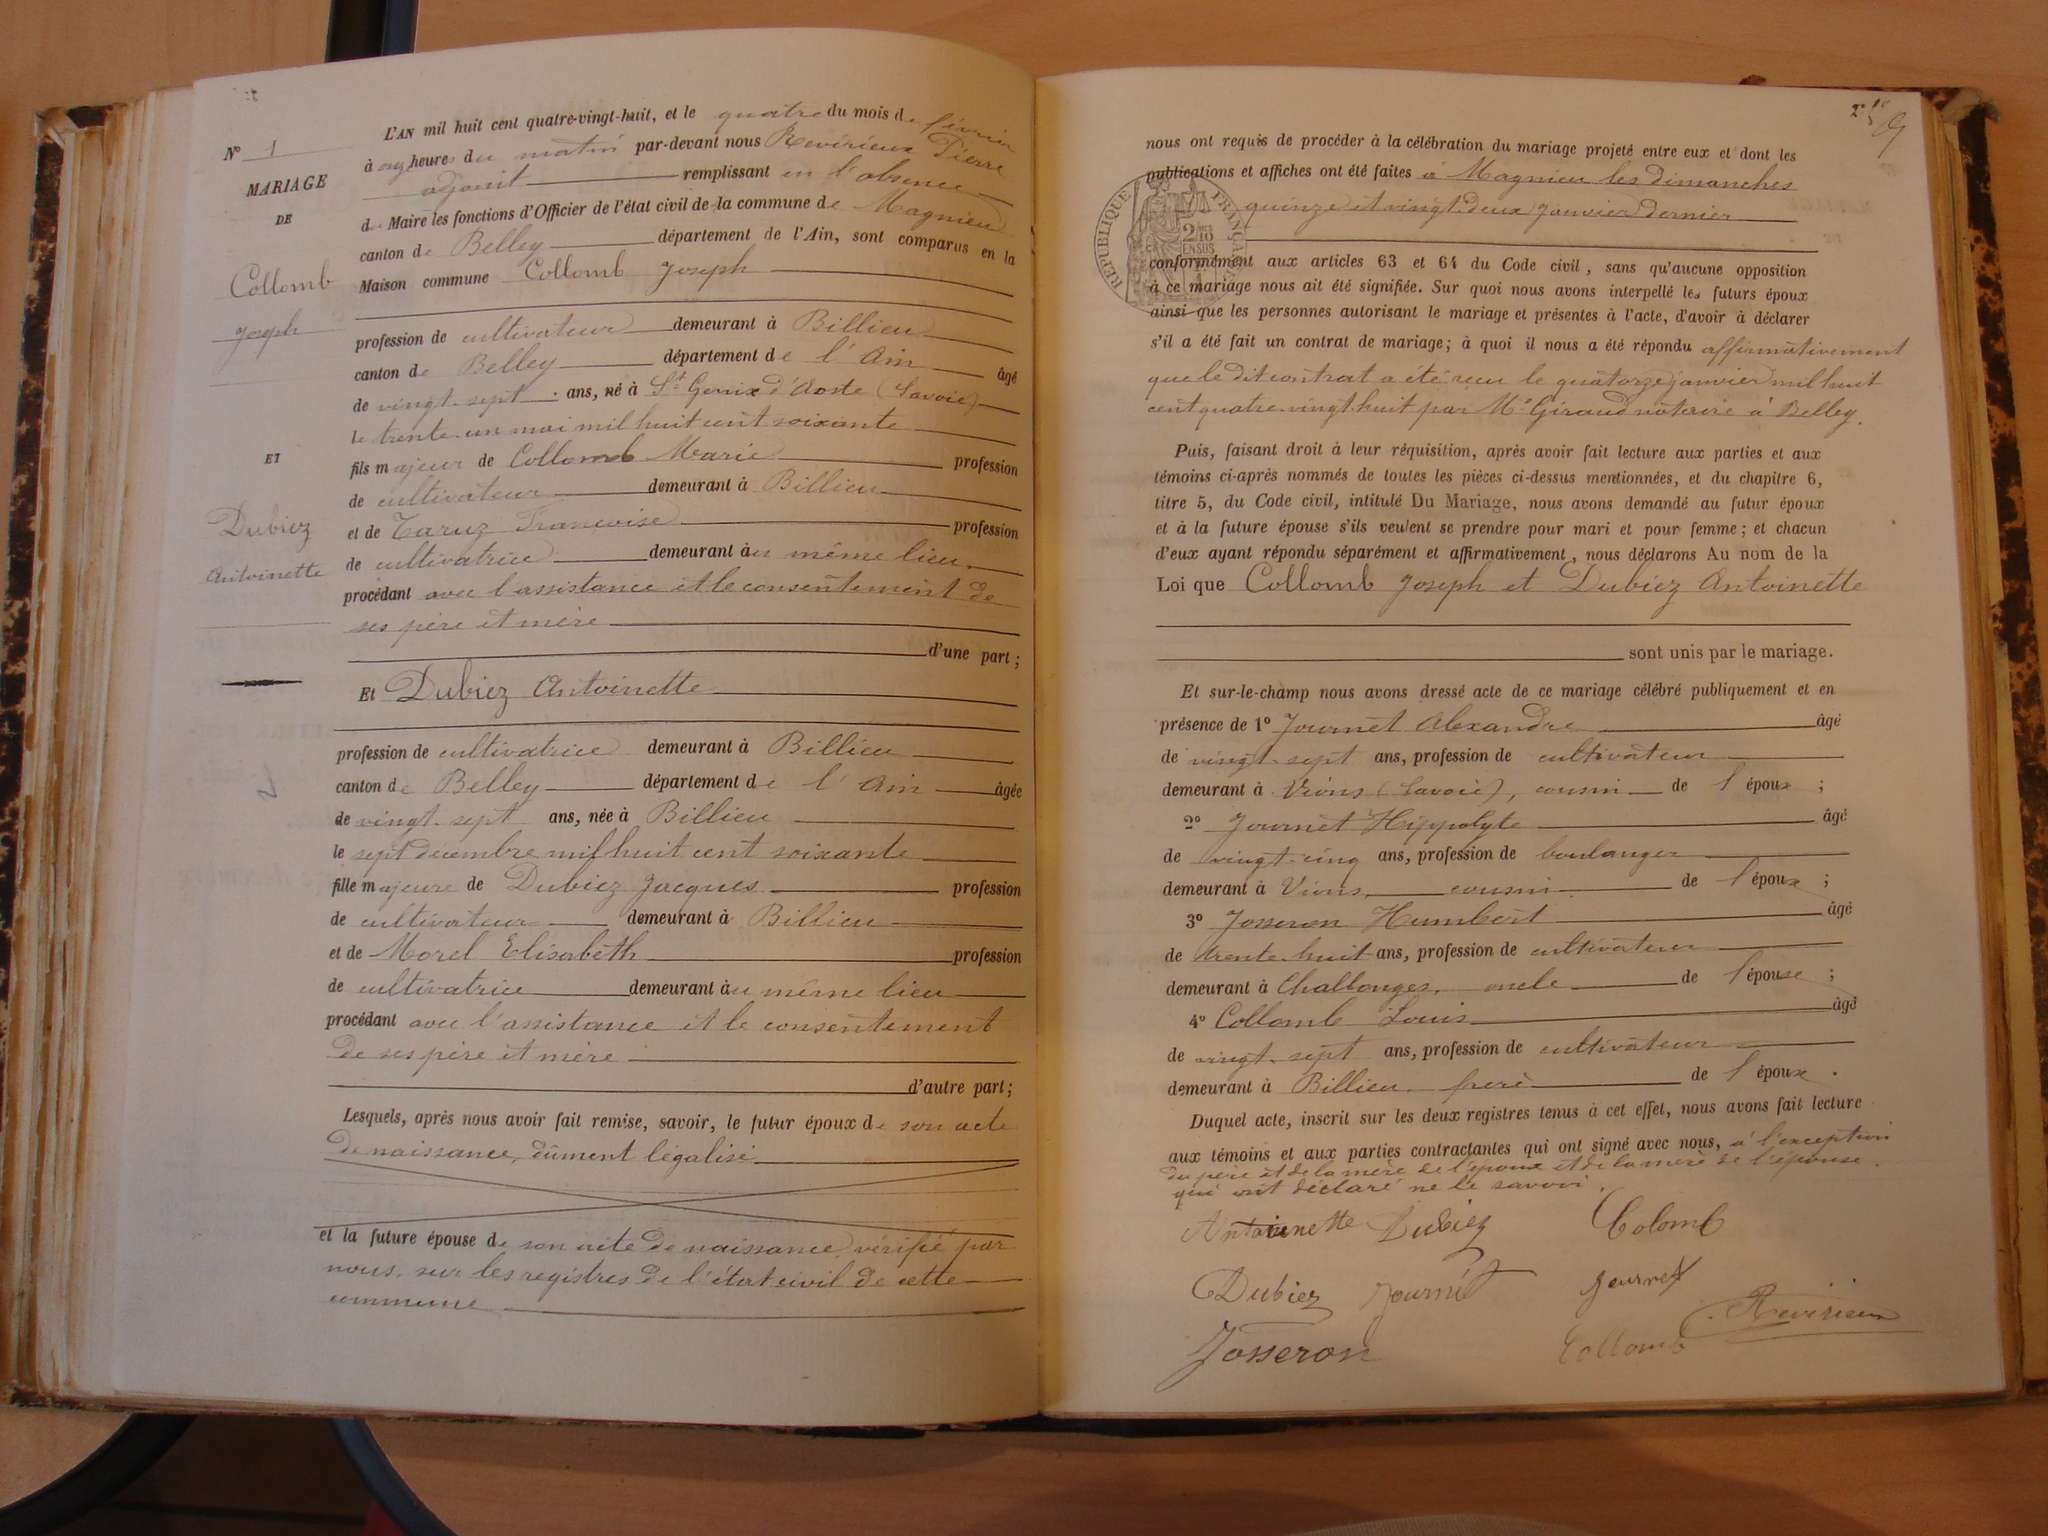 N° 1
MARIAGE
DE
Collomb
Joseph
ET
Dubiez
Antoinette
L'AN mil huit cent quatre-vingt-huit, et le quatre du mois de février
à onze heures du matin par-devant nous Revirieux Pierre
adjoint remplissant en l'absence
du Maire les fonctions d'Officier de l'état civil de la commune de Magnieu
canton de Belley département de l'Ain, sont comparus en la
Maison commune Collomb Joseph
profession de cultivateur demeurant à Billieu
canton de Belley département de l'Ain âgé
de vingt-sept ans, né à St Genix d'Aoste (Savoie)
le trente-un mai mil huit cent soixante
fils majeur de Collomb Marie profession
de cultivateur demeurant à Billieu
et de Taruz Françoise profession
de cultivatrice demeurant au même lieu
procédant avec l'assistance et le consentement de
ses père et mère
d'une part;
Et Dubiez Antoinette
profession de cultivatrice demeurant à Billieu
canton de Belley département de l'Ain âgée
de vingt-sept ans, née à Billieu
le sept décembre mil huit cent soixante
fille majeure de Dubiez Jacques profession
de cultivateur demeurant à Billieu
et de Morel Elisabeth profession
de cultivatrice demeurant au même lieu
procédant avec l'assistance et le consentement
de ses père et mère
d'autre part;
Lesquels, après nous avoir fait remise, savoir, le futur époux de son acte
de naissance, dûment légalisé
et la future épouse de son acte de naissance vérifié par
nous, sur les registres de l'état civil de cette
commune
nous ont requis de procéder à la célébration du mariage projeté entre eux et dont les
publications et affiches ont été faites à Magnieu les dimanches
quinze et vingt-deux janvier dernier
REPUBLIQUE FRANÇAISE
conformément aux articles 63 et 64 du Code civil, sans qu'aucune opposition
à ce mariage nous ait été signifiée. Sur quoi nous avons interpellé les futurs époux
ainsi que les personnes autorisant le mariage et présentes à l'acte, d'avoir à déclarer
s'il a été fait un contrat de mariage; à quoi il nous a été répondu affirmativement
que le dit contrat a été reçu le quatorze janvier mil huit
cent quatre-vingt-huit par Me Giraud notaire à Belley.
Puis, faisant droit à leur réquisition, après avoir fait lecture aux parties et aux
témoins ci-après nommés de toutes les pièces ci-dessus mentionnées, et du chapitre 6,
titre 5, du Code civil, intitulé Du Mariage, nous avons demandé au futur époux
et à la future épouse s'ils veulent se prendre pour mari et pour femme; et chacun
d'eux ayant répondu séparément et affirmativement, nous déclarons Au nom de la
Loi que Collomb Joseph et Dubiez Antoinette
sont unis par le mariage.
Et sur-le-champ nous avons dressé acte de ce mariage célébré publiquement et en
présence de 1° Journet Alexandre âgé
de vingt-sept ans, profession de cultivateur
demeurant à Vions (Savoie), cousin de l'époux;
2° Journet Hippolyte âgé
de vingt-cinq ans, profession de boulanger
demeurant à Vions cousin de l'époux;
3° Josseron Humbert âgé
de trente-huit ans, profession de cultivateur
demeurant à Challonges, oncle de l'épouse;
4° Collomb Louis âgé
de vingt-sept ans, profession de cultivateur
demeurant à Billieu frère de l'époux.
Duquel acte, inscrit sur les deux registres tenus à cet effet, nous avons fait lecture
aux témoins et aux parties contractantes qui ont signé avec nous, à l'exception
du père et de la mère de l'époux et de la mère de l'épouse
qui ont déclaré ne le savoir.
Antoinette Dubiez Colomb
Dubiez Journet Journet Revirieux
Josseron Collomb